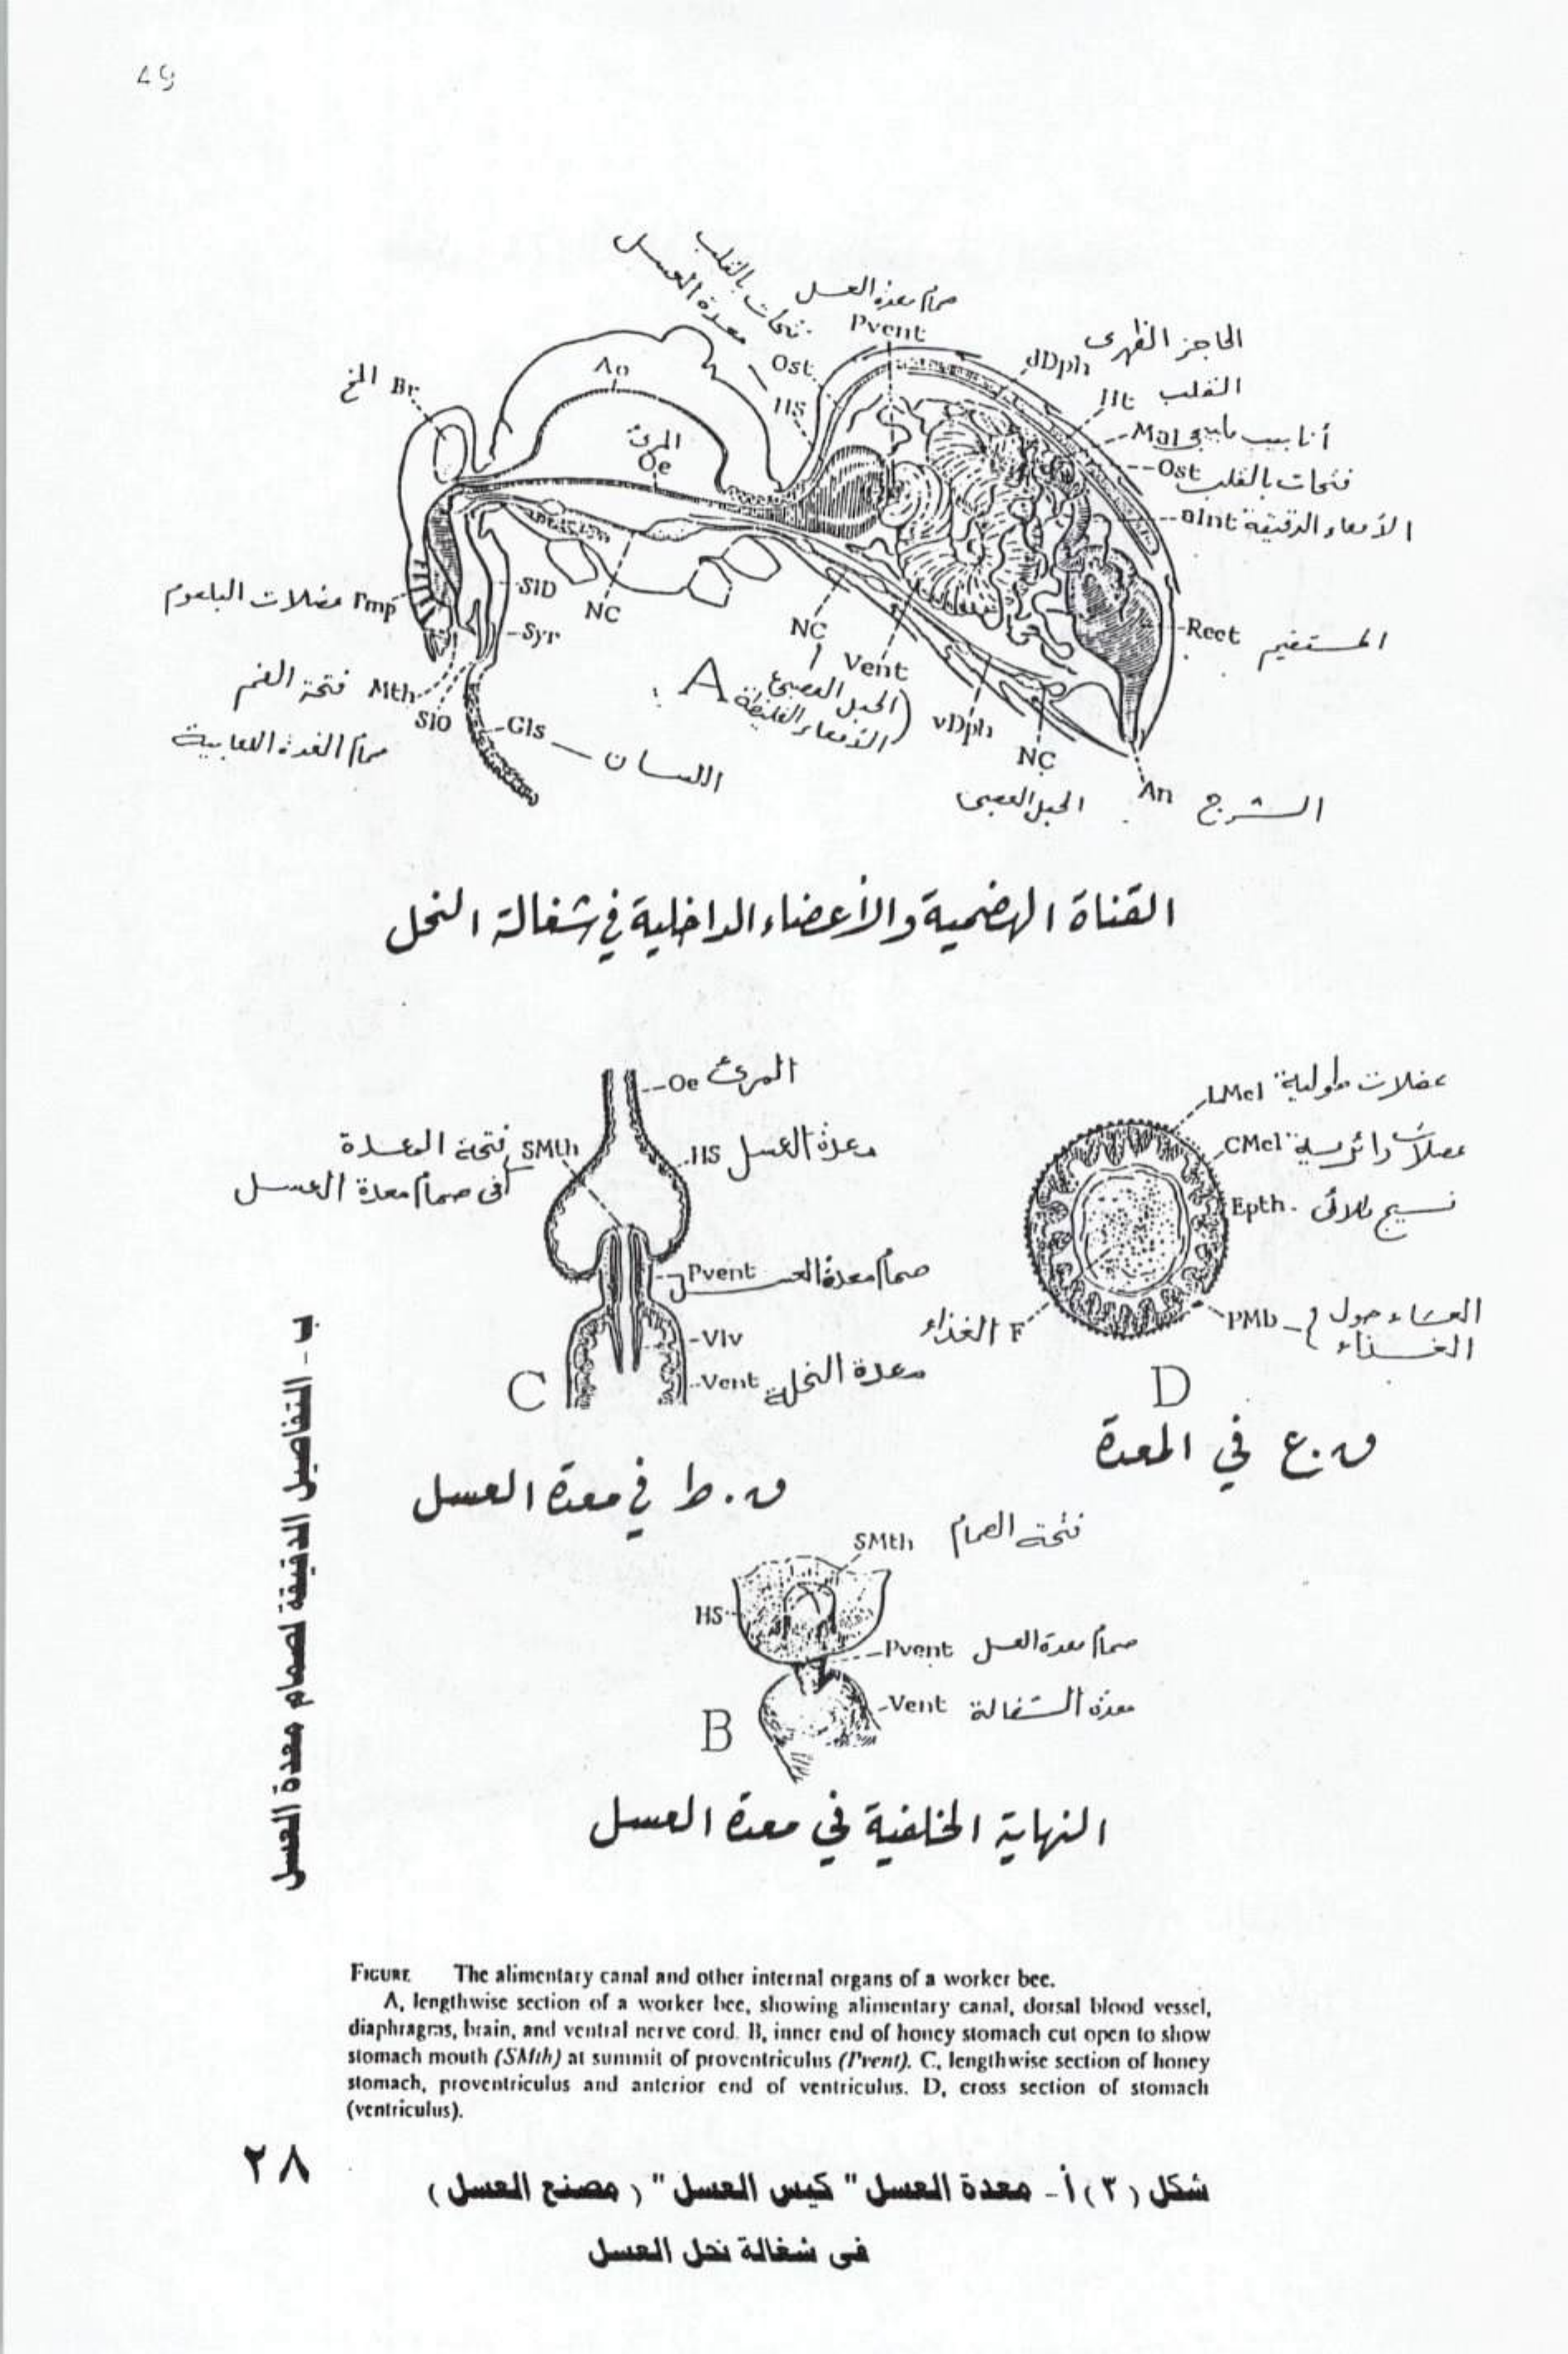 49
فتحات بالقلب
معدة العسل
صمام معدة العسل
Pvent
Ost
HS
الحاجز الظهرى
dDph
Ht القلب
Mal أنابيب ملبيجى
Ost فتحات بالقلب
aInt الأمعاء الدقيقة
المخ Br
Ao
المرئ
Oe
Rect المستقيم
عضلات البلعوم Pmp
SlD
NC
Syr
NC
Vent
A
الحبل العصبى
الأمعاء الغليظة
vDph
NC
الحبل العصبى
An الشرج
فتحة الفم Mth
SlO
صمام الغدة اللعابية
Gls
اللسان
القناة الهضمية والأعضاء الداخلية في شغالة النحل
Oe المرئ
فتحة المعدة SMth
فى صمام معدة العسل
HS معدة العسل
Pvent صمام معدة العسل
Vlv
Vent معدة النحلة
C
ق . ط في معدة العسل
LMcl عضلات طولية
CMcl عضلات دائرية
Epth نسيج طلائى
PMb الغشاء حول
الغذاء
الغذاء F
D
ق . ع في المعدة
SMth فتحة الصمام
HS
Pvent صمام معدة العسل
Vent معدة الشغالة
B
النهاية الخلفية في معدة العسل
ب - التفاصيل الدقيقة لصمام معدة العسل
FIGURE The alimentary canal and other internal organs of a worker bee.
A, lengthwise section of a worker bee, showing alimentary canal, dorsal blood vessel,
diaphragms, brain, and ventral nerve cord. B, inner end of honey stomach cut open to show
stomach mouth (SMth) at summit of proventriculus (Pvent). C, lengthwise section of honey
stomach, proventriculus and anterior end of ventriculus. D, cross section of stomach
(ventriculus).
شكل (٣) أ - معدة العسل " كيس العسل " ( مصنع العسل )
فى شغالة نحل العسل
٢٨